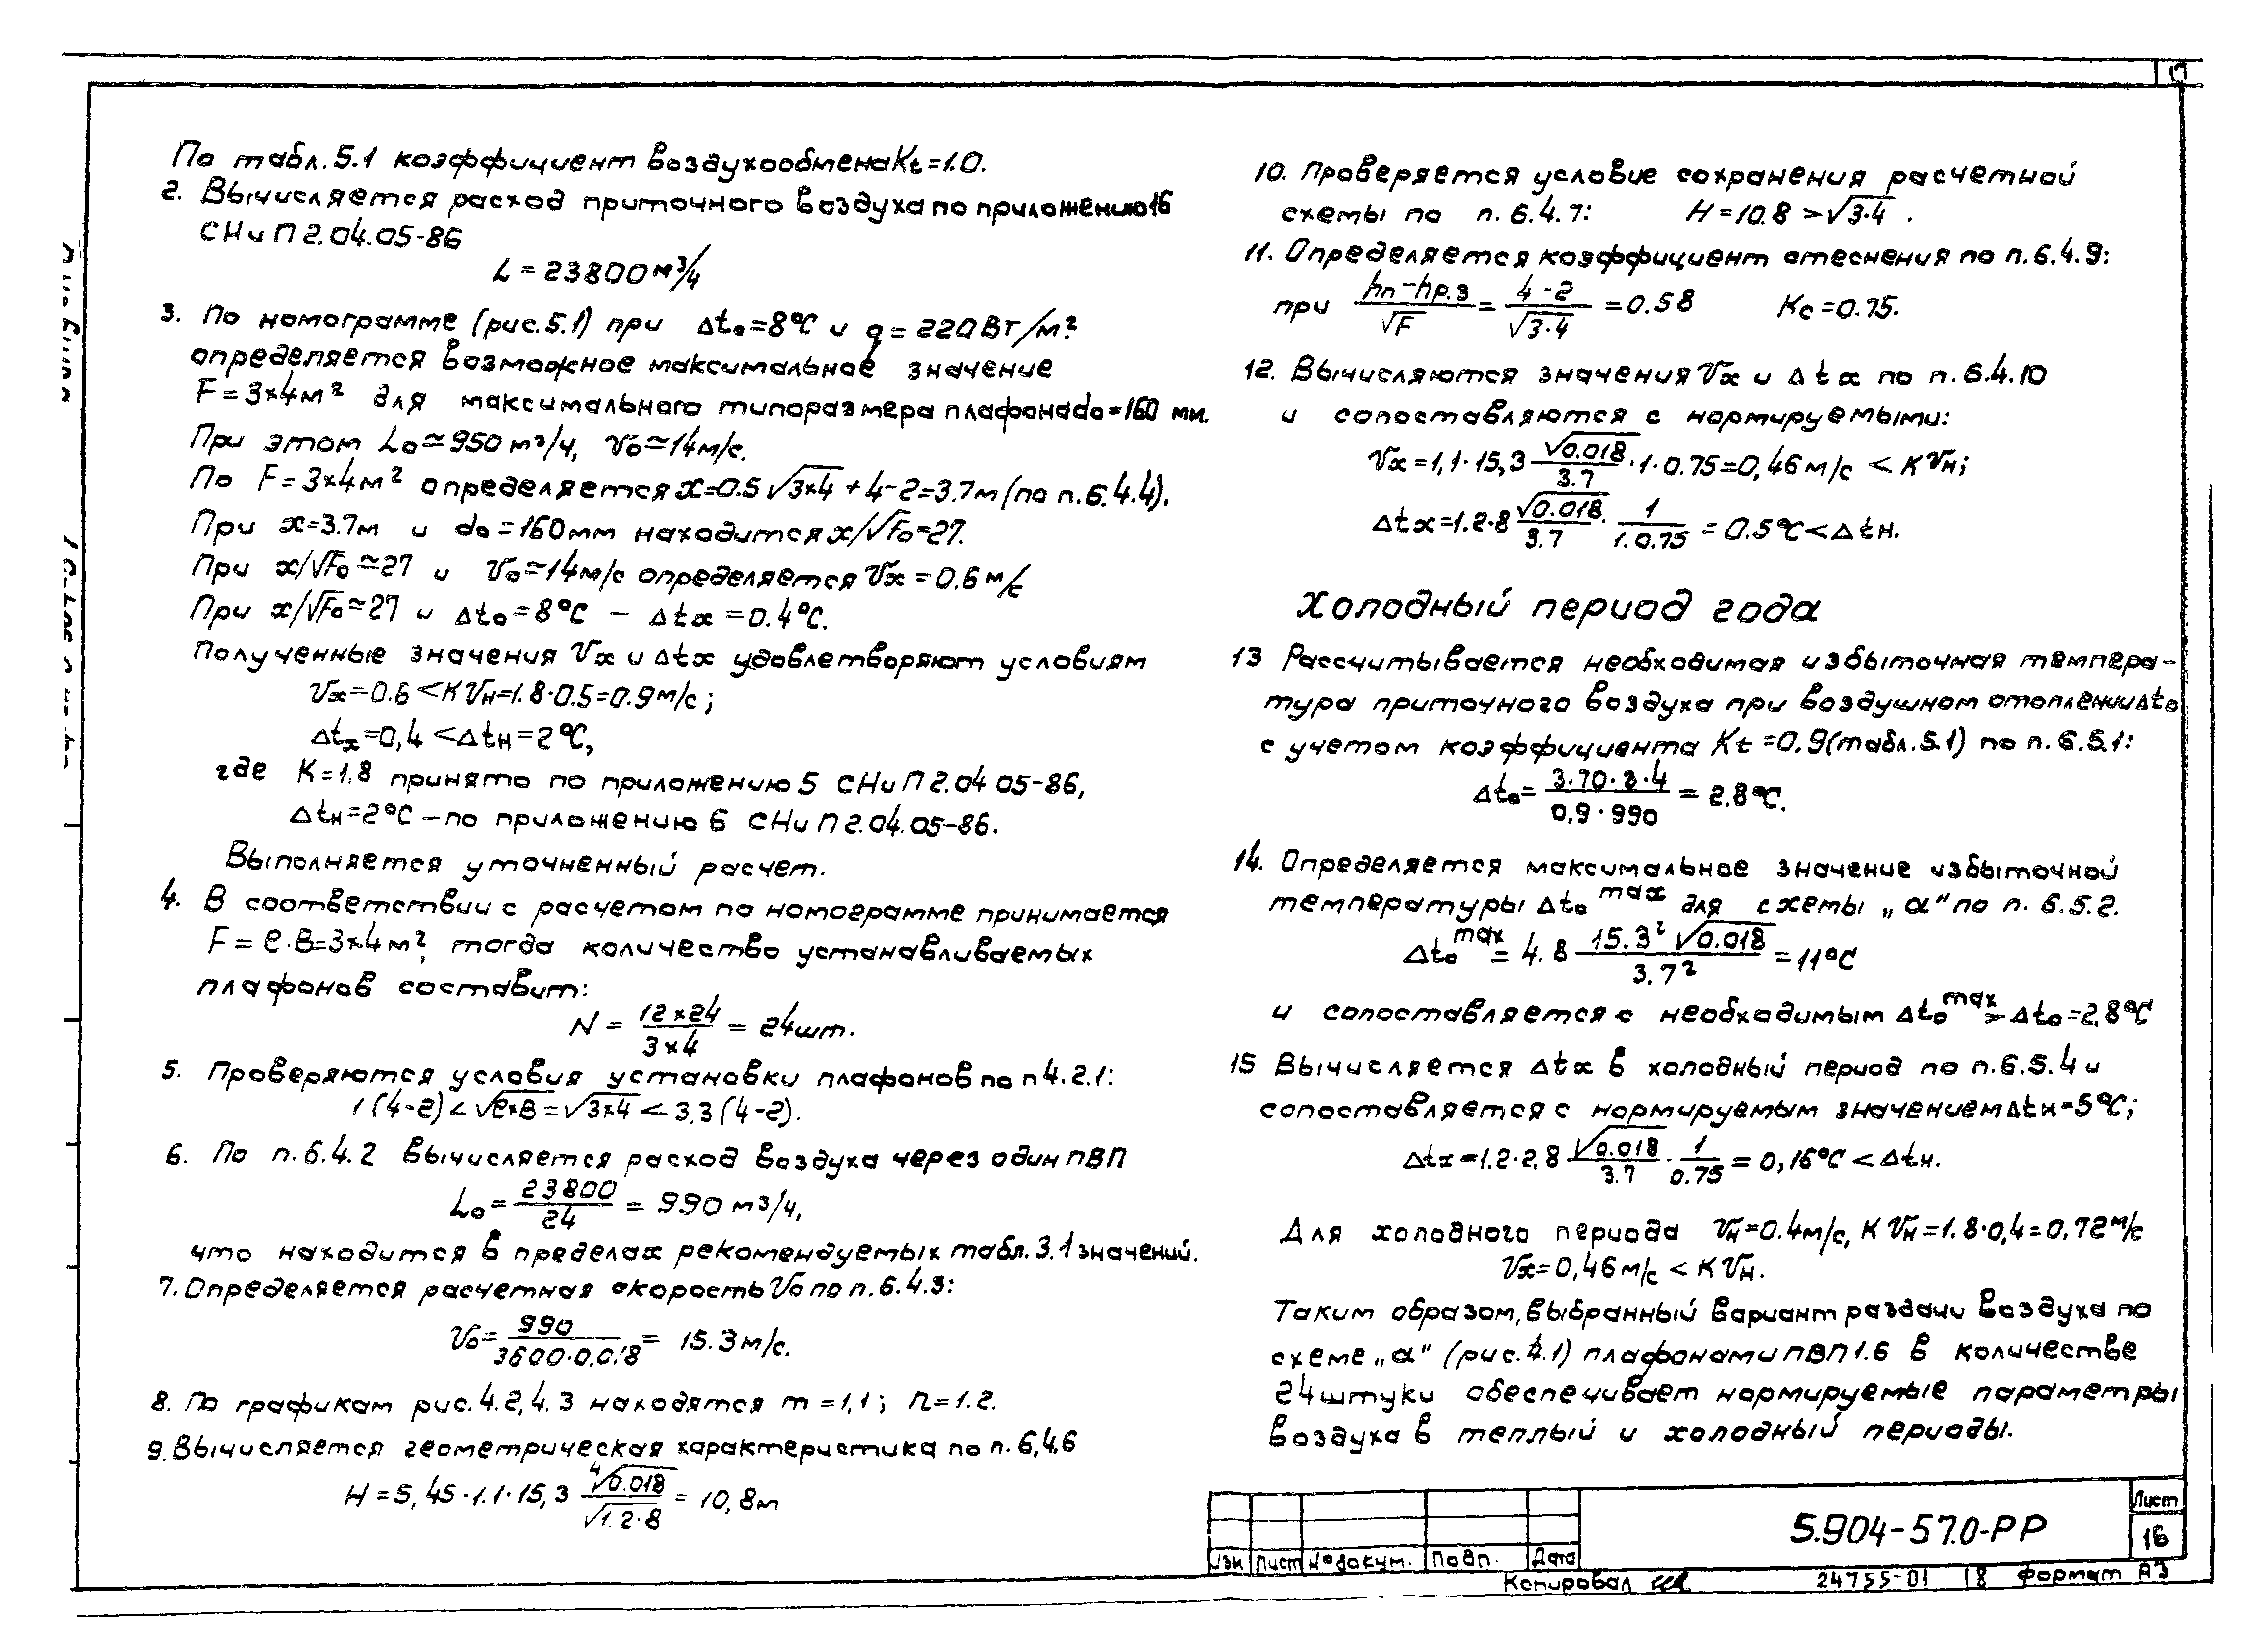 17
По табл. 5.1 коэффициент воздухообмена Kt=1.0.
2. Вычисляется расход приточного воздуха по приложению 16
СНиП 2.04.05-86
L = 23800 м³/ч
3. По номограмме (рис. 5.1) при Δt₀=8°C и q = 220 Вт/м²
определяется возможное максимальное значение
F = 3×4 м² для максимального типоразмера плафона d₀=160 мм.
При этом L₀≃950 м³/ч, V₀≃14 м/с.
По F = 3×4 м² определяется x=0.5 √3×4 + 4-2=3.7 м (по п. 6.4.4).
При x=3.7 м и d₀=160 мм находится x/√F₀=27.
При x/√F₀≃27 и V₀≃14 м/с определяется Vx = 0.6 м/с
При x/√F₀≃27 и Δt₀=8°C – Δtx = 0.4°C.
Полученные значения Vx и Δtx удовлетворяют условиям
Vx=0.6 < К Vн=1.8·0.5=0.9 м/с;
Δtx=0,4 < Δtн=2°C,
где К=1,8 принято по приложению 5 СНиП 2.04 05-86,
Δtн=2°C – по приложению 6 СНиП 2.04.05-86.
Выполняется уточненный расчет.
4. В соответствии с расчетом по номограмме принимается
F = ℓ·B=3×4 м², тогда количество устанавливаемых
плафонов составит:
N = 12×24 / 3×4 = 24 шт.
5. Проверяются условия установки плафонов по п 4.2.1:
1 (4-2) < √ℓ×B = √3×4 < 3,3 (4-2).
6. По п. 6.4.2 вычисляется расход воздуха через один ПВП
L₀ = 23800 / 24 = 990 м³/ч,
что находится в пределах рекомендуемых табл. 3.1 значений.
7. Определяется расчетная скорость V₀ по п. 6.4.3:
V₀ = 990 / 3600·0.018 = 15.3 м/с.
8. По графикам рис. 4.2, 4.3 находятся m = 1,1; n = 1.2.
9. Вычисляется геометрическая характеристика по п. 6,4,6
H = 5,45·1.1·15,3 ⁴√0.018 / √1.2·8 = 10,8 м
10. Проверяется условие сохранения расчетной
схемы по п. 6.4.7: H = 10.8 > √3·4 .
11. Определяется коэффициент стеснения по п. 6.4.9:
при hп-hр.з / √F = 4-2 / √3·4 = 0.58 Kc = 0.75.
12. Вычисляются значения Vx и Δtx по п. 6.4.10
и сопоставляются с нормируемыми:
Vx = 1,1·15,3 √0.018 / 3.7 ·1·0.75=0,46 м/с < К Vн;
Δtx=1.2·8 √0.018 / 3.7 · 1 / 1.0.75 = 0.5°C < Δtн.
Холодный период года
13 Рассчитывается необходимая избыточная темпера-
тура приточного воздуха при воздушном отоплении Δt₀
с учетом коэффициента Kt = 0,9 (табл. 5.1) по п. 6.5.1:
Δt₀ = 3·70·3·4 / 0,9·990 = 2.8°C.
14. Определяется максимальное значение избыточной
температуры Δt₀ max для схемы „а" по п. 6.5.2.
Δt₀ max = 4.8 15.3² √0.018 / 3.7² = 11°C
и сопоставляется с необходимым Δt₀ max > Δt₀ = 2,8°C
15 Вычисляется Δtx в холодный период по п. 6.5.4 и
сопоставляется с нормируемым значением Δtн=5°C;
Δtx = 1.2·2,8 √0.018 / 3.7 · 1 / 0.75 = 0,16°C < Δtн.
Для холодного периода Vн=0.4 м/с, К Vн=1.8·0,4=0,72 м/с
Vx=0,46 м/с < К Vн.
Таким образом, выбранный вариант раздачи воздуха по
схеме „а" (рис. 4.1) плафонами ПВП1.6 в количестве
24 штуки обеспечивает нормируемые параметры
воздуха в теплый и холодный периоды.
5.904-57.0-РР
Лист
16
Изм Лист № докум. Подп. Дата
Копировал 24755-01 18 Формат А3